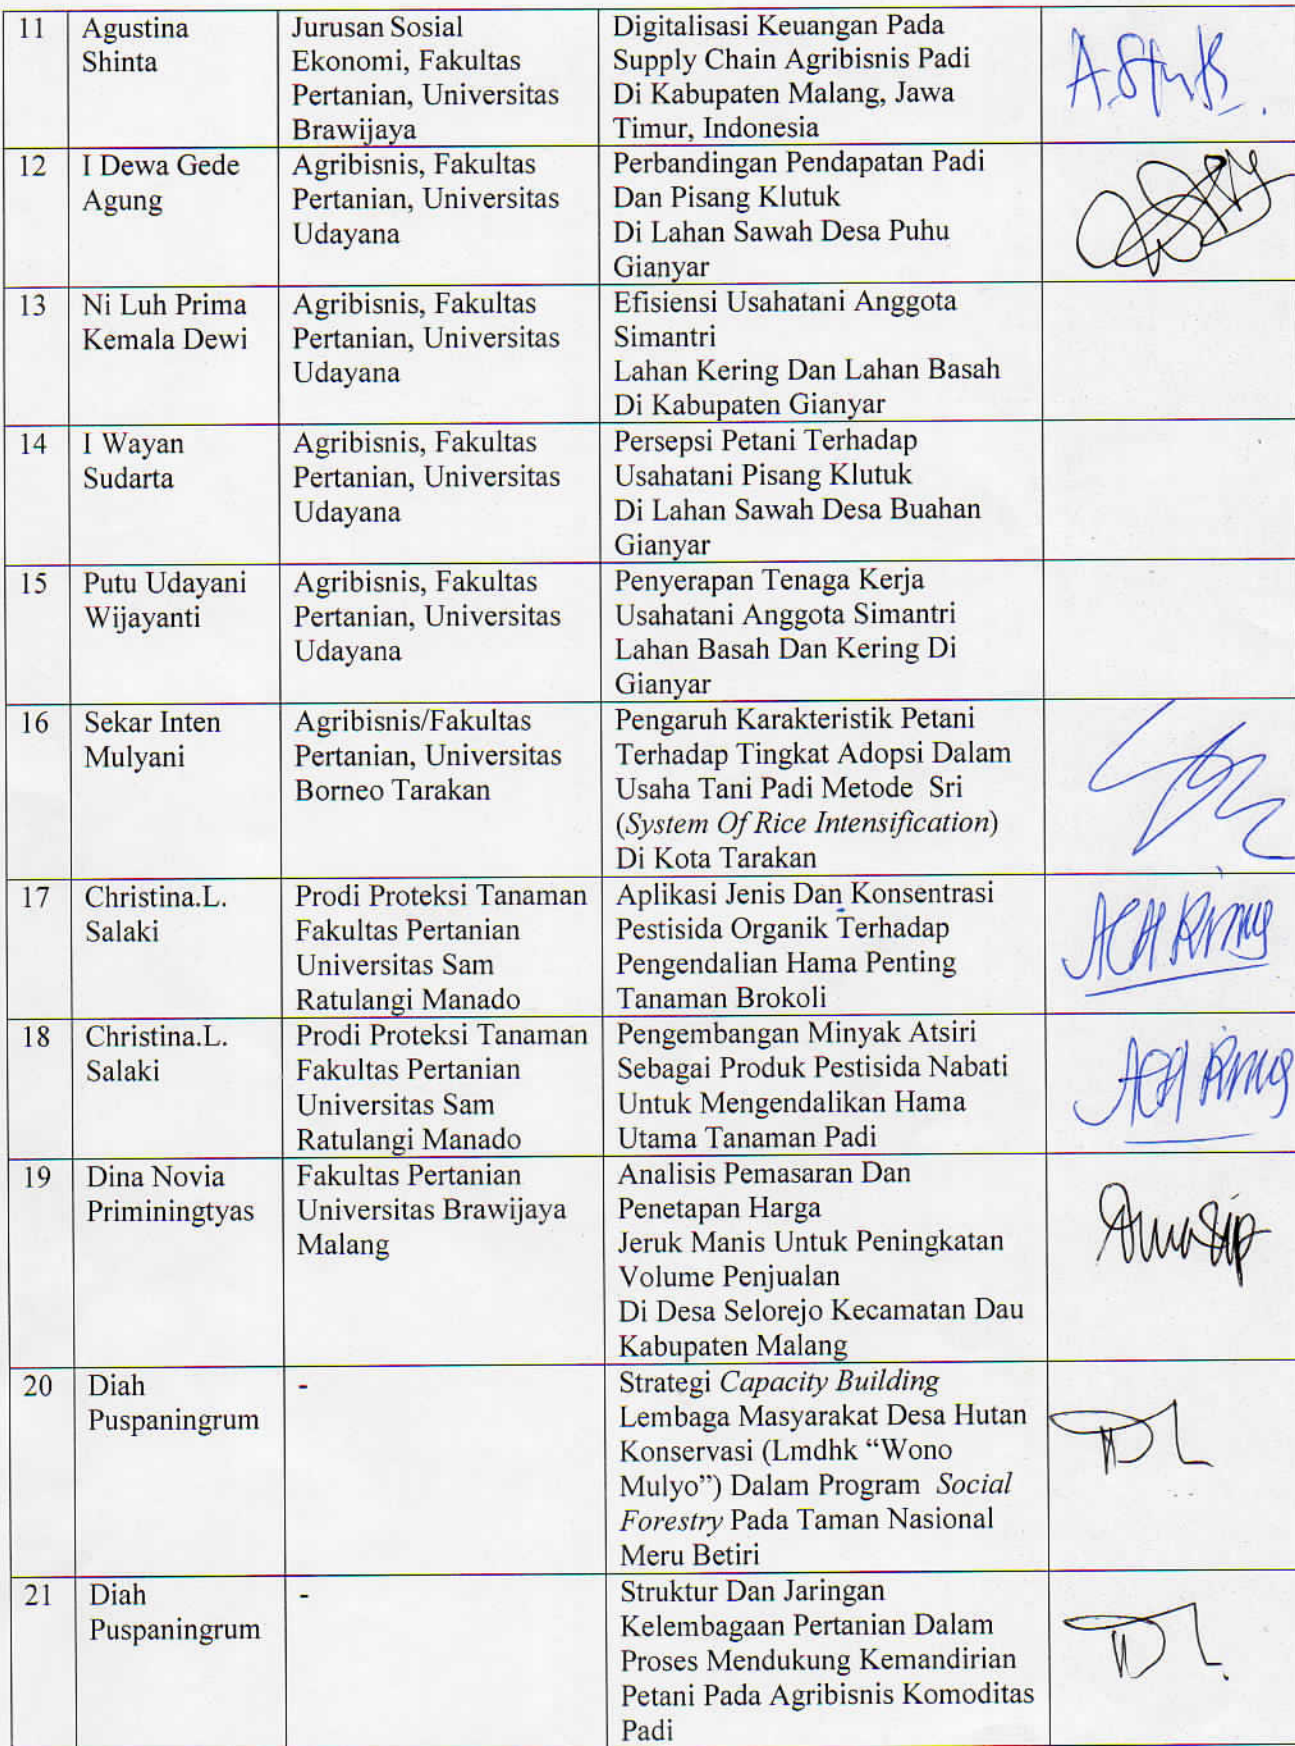 11
Agustina
Shinta
Jurusan Sosial
Ekonomi, Fakultas
Pertanian, Universitas
Brawijaya
Digitalisasi Keuangan Pada
Supply Chain Agribisnis Padi
Di Kabupaten Malang, Jawa
Timur, Indonesia
12
I Dewa Gede
Agung
Agribisnis, Fakultas
Pertanian, Universitas
Udayana
Perbandingan Pendapatan Padi
Dan Pisang Klutuk
Di Lahan Sawah Desa Puhu
Gianyar
13
Ni Luh Prima
Kemala Dewi
Agribisnis, Fakultas
Pertanian, Universitas
Udayana
Efisiensi Usahatani Anggota
Simantri
Lahan Kering Dan Lahan Basah
Di Kabupaten Gianyar
14
I Wayan
Sudarta
Agribisnis, Fakultas
Pertanian, Universitas
Udayana
Persepsi Petani Terhadap
Usahatani Pisang Klutuk
Di Lahan Sawah Desa Buahan
Gianyar
15
Putu Udayani
Wijayanti
Agribisnis, Fakultas
Pertanian, Universitas
Udayana
Penyerapan Tenaga Kerja
Usahatani Anggota Simantri
Lahan Basah Dan Kering Di
Gianyar
16
Sekar Inten
Mulyani
Agribisnis/Fakultas
Pertanian, Universitas
Borneo Tarakan
Pengaruh Karakteristik Petani
Terhadap Tingkat Adopsi Dalam
Usaha Tani Padi Metode Sri
(System Of Rice Intensification)
Di Kota Tarakan
17
Christina.L.
Salaki
Prodi Proteksi Tanaman
Fakultas Pertanian
Universitas Sam
Ratulangi Manado
Aplikasi Jenis Dan Konsentrasi
Pestisida Organik Terhadap
Pengendalian Hama Penting
Tanaman Brokoli
18
Christina.L.
Salaki
Prodi Proteksi Tanaman
Fakultas Pertanian
Universitas Sam
Ratulangi Manado
Pengembangan Minyak Atsiri
Sebagai Produk Pestisida Nabati
Untuk Mengendalikan Hama
Utama Tanaman Padi
19
Dina Novia
Priminingtyas
Fakultas Pertanian
Universitas Brawijaya
Malang
Analisis Pemasaran Dan
Penetapan Harga
Jeruk Manis Untuk Peningkatan
Volume Penjualan
Di Desa Selorejo Kecamatan Dau
Kabupaten Malang
20
Diah
Puspaningrum
-
Strategi Capacity Building
Lembaga Masyarakat Desa Hutan
Konservasi (Lmdhk “Wono
Mulyo”) Dalam Program Social
Forestry Pada Taman Nasional
Meru Betiri
21
Diah
Puspaningrum
-
Struktur Dan Jaringan
Kelembagaan Pertanian Dalam
Proses Mendukung Kemandirian
Petani Pada Agribisnis Komoditas
Padi